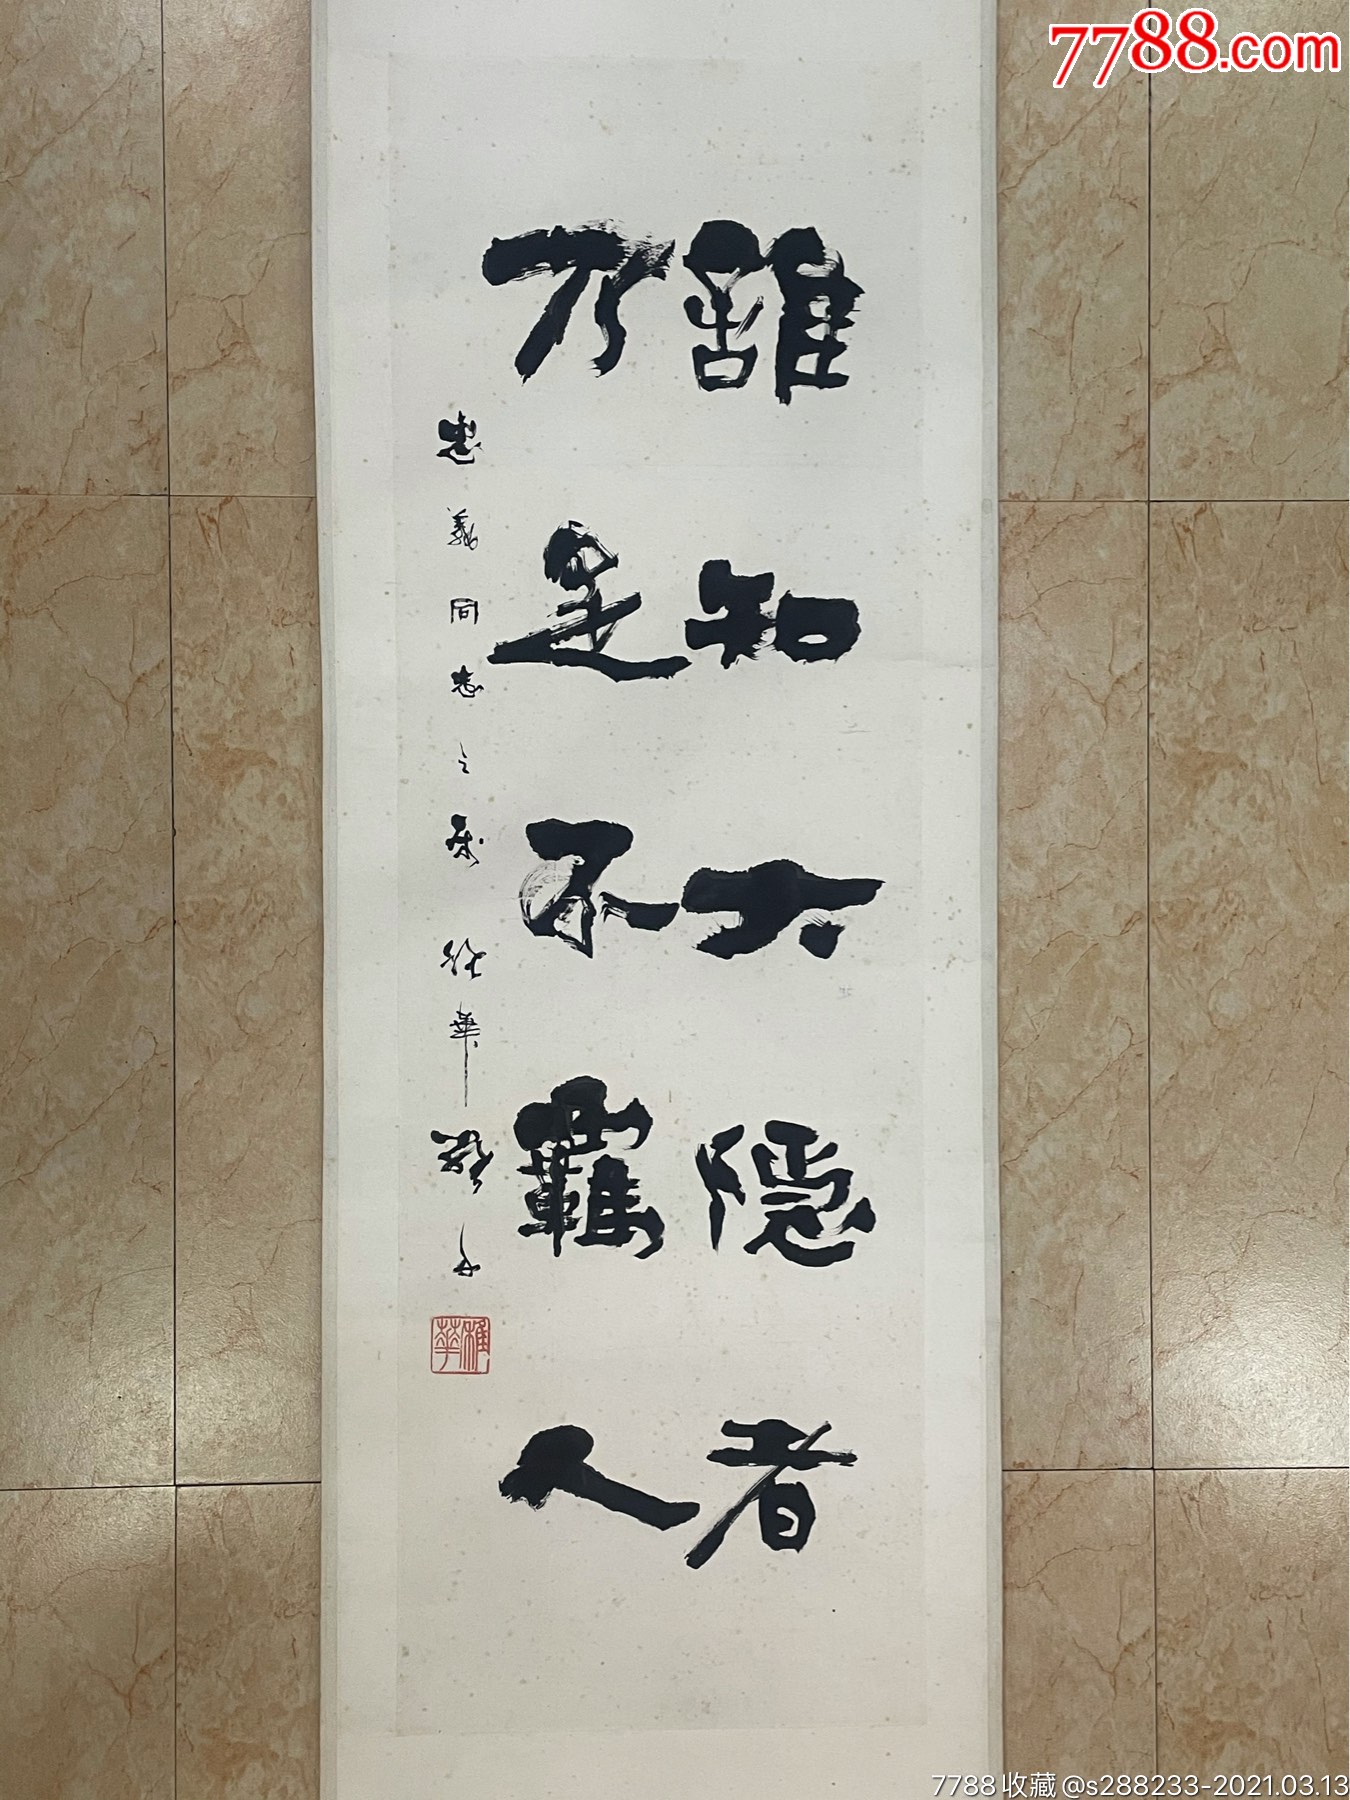 7788.com
誰知大隱者
乃是不羈人
忠義同志之屬 稚華
稚華
7788收藏@s288233-2021.03.13